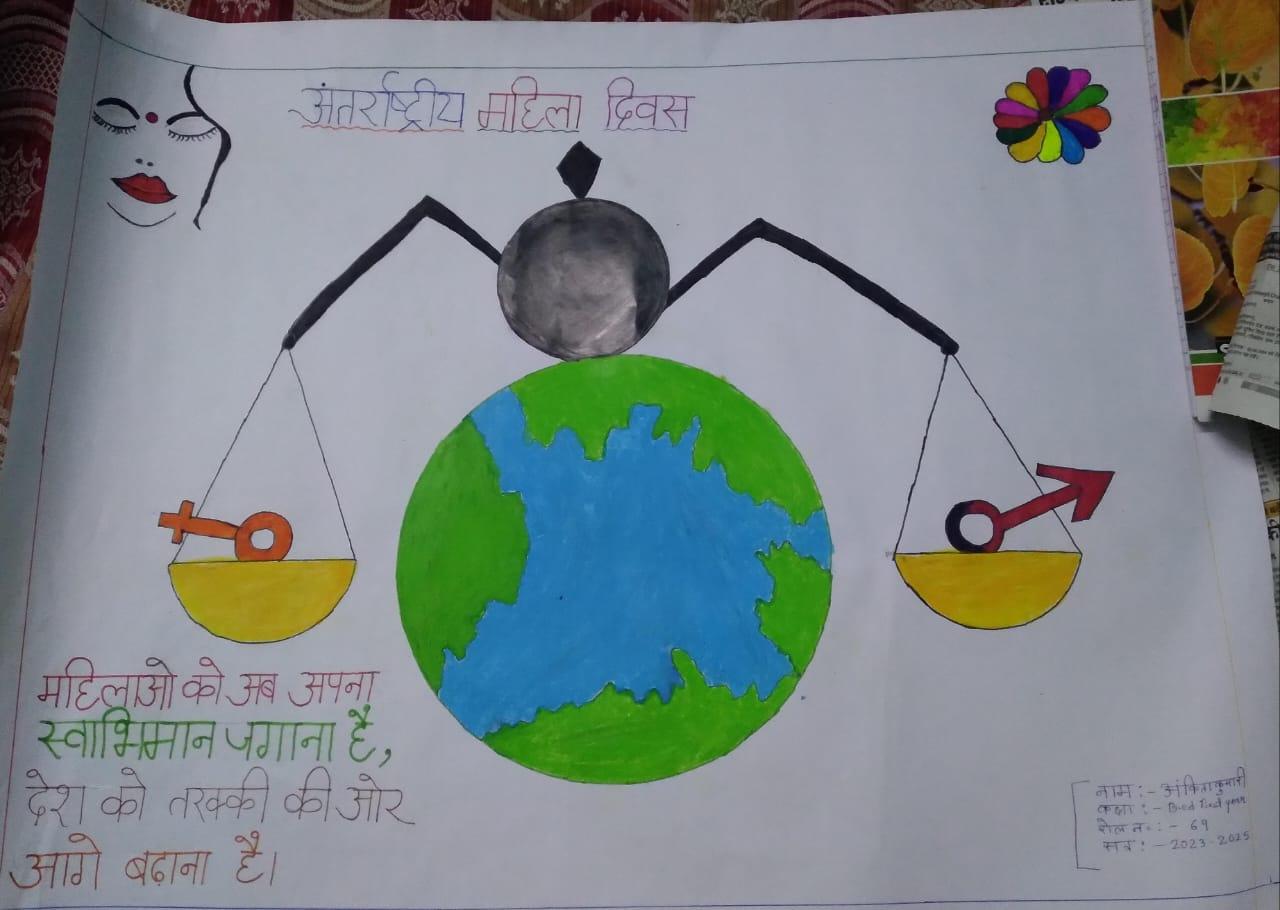 अंतर्राष्ट्रीय महिला दिवस
महिलाओ को अब अपना
स्वाभिमान जगाना है,
देश को तरक्की की ओर
आगे बढ़ाना है।
नाम :- अंकिता कुमारी
कक्षा :- B.ed First year
रोल न० :- 69
सत्र :- 2023-2025